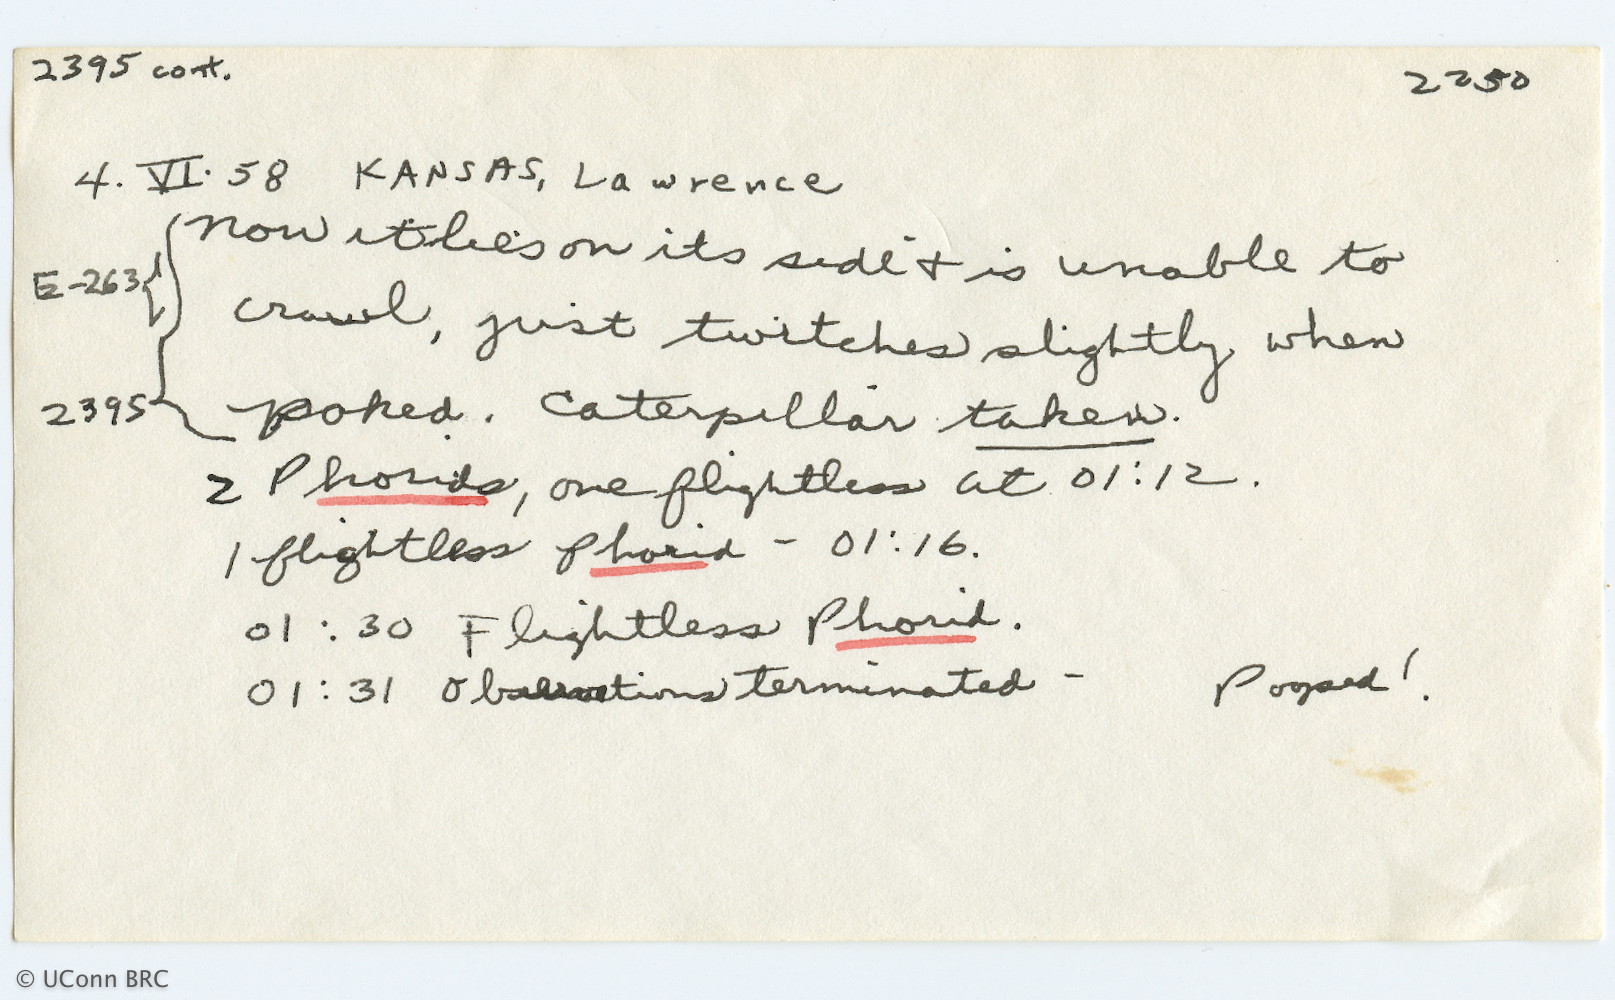 2395 cont. 2250
4. VI. 58 KANSAS, Lawrence
Now it lies on its side & is unable to
E-263
crawl, just twitches slightly when
2395 poked. Caterpillar taken.
2 Phorids, one flightless at 01:12.
1 flightless phorid - 01:16.
01:30 Flightless Phorid.
01:31 Observations terminated - Pooped!
© UConn BRC